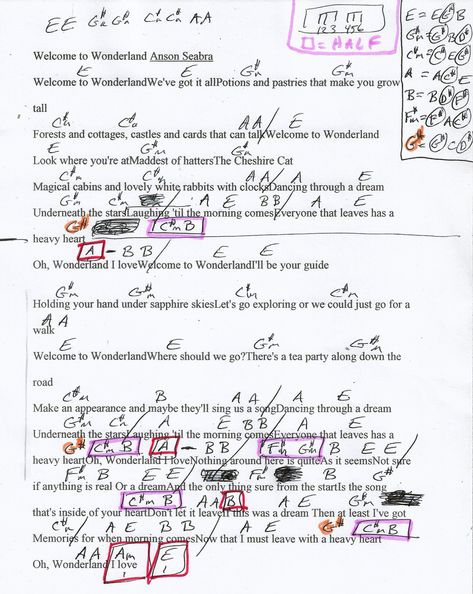 E E G#m G#m C#m C#m A A
123 456
□ = HALF
E = E G# B
G#m = G# B D#
C#m = C# E G#
A = A C# E
B = B D# F#
F#m = F# A C#
G# = G# C D#
Welcome to Wonderland Anson Seabra
E E G#m G#m
Welcome to WonderlandWe've got it allPotions and pastries that make you grow
tall
C#m C#m A A / E
Forests and cottages, castles and cards that can talkWelcome to Wonderland
E G#m G#m
Look where you're atMaddest of hattersThe Cheshire Cat
C#m C#m A A / A E
Magical cabins and lovely white rabbits with clocksDancing through a dream
G#m C#m A E B B / A E
Underneath the starsLaughing 'til the morning comesEveryone that leaves has a
G# C#m B
heavy heart
A - B B E E
Oh, Wonderland I loveWelcome to WonderlandI'll be your guide
G#m G#m C#m C#m
Holding your hand under sapphire skiesLet's go exploring or we could just go for a
A A
walk
E E G#m G#m
Welcome to WonderlandWhere should we go?There's a tea party along down the
road
C#m B A A / A E
Make an appearance and maybe they'll sing us a songDancing through a dream
G#m C#m / A E B B / A E
Underneath the starsLaughing 'til the morning comesEveryone that leaves has a
G# C#m B A - B B F#m G#m B E E
heavy heartOh, Wonderland I loveNothing around here is quiteAs it seemsNot sure
F#m B E E F#m B E
if anything is real Or a dreamAnd the only thing sure from the startIs the song
C#m B A A B A E G#m
that's inside of your heartDon't let it leaveIf this was a dream Then at least I've got
C#m A E B B A E G# C#m B
Memories for when morning comesNow that I must leave with a heavy heart
A A Am E
Oh, Wonderland I love
1 1